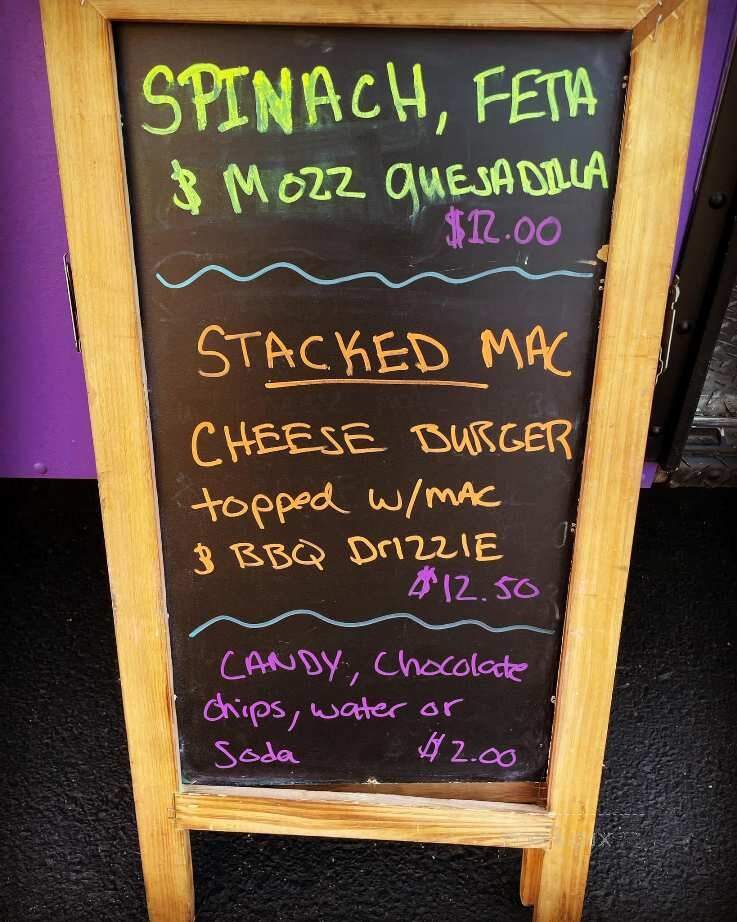 SPINACH, FETA
& MOZZ QUESADILLA
$12.00
STACKED MAC
CHEESE BURGER
topped w/MAC
& BBQ DrIZZIE
$12.50
CANDY, Chocolate
chips, water or
Soda $2.00